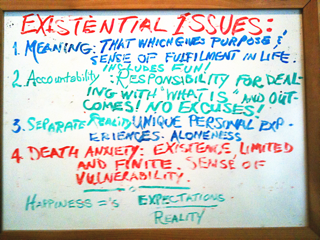 EXISTENTIAL ISSUES:
1. MEANING: THAT WHICH GIVES PURPOSE &
SENSE OF FULFILMENT IN LIFE.
INCLUDES FUN!
2. Accountability: RESPONSIBILITY FOR DEAL-
ING WITH "WHAT IS" AND OUT-
COMES! NO EXCUSES!
3. SEPARATE REALITY: UNIQUE PERSONAL EXP-
ERIENCES. ALONENESS
4. DEATH ANXIETY: EXISTENCE LIMITED
AND FINITE. SENSE OF
VULNERABILITY.
HAPPINESS ='S EXPECTATIONS
REALITY